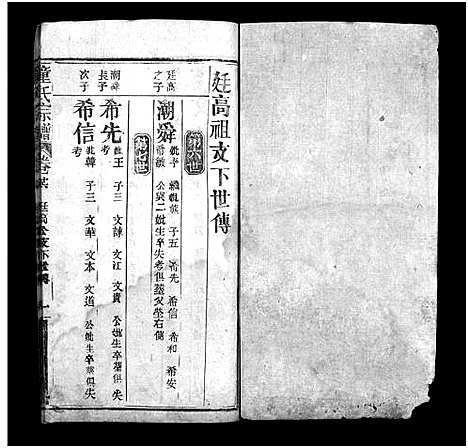 廷高祖支下世傳
第六世
廷高
之子
潮舜
子五 希先 希信 希和 希安
公與二妣生卒失考俱葬父塋右側
第七世
潮舜
長子
希先
妣王 子三 文諫 文江 文貴 公妣生卒葬俱失
考
次子
希信
妣韓 子三 文華 文本 文道 公妣生卒葬俱失
考
童氏宗譜
廷高公支下世傳